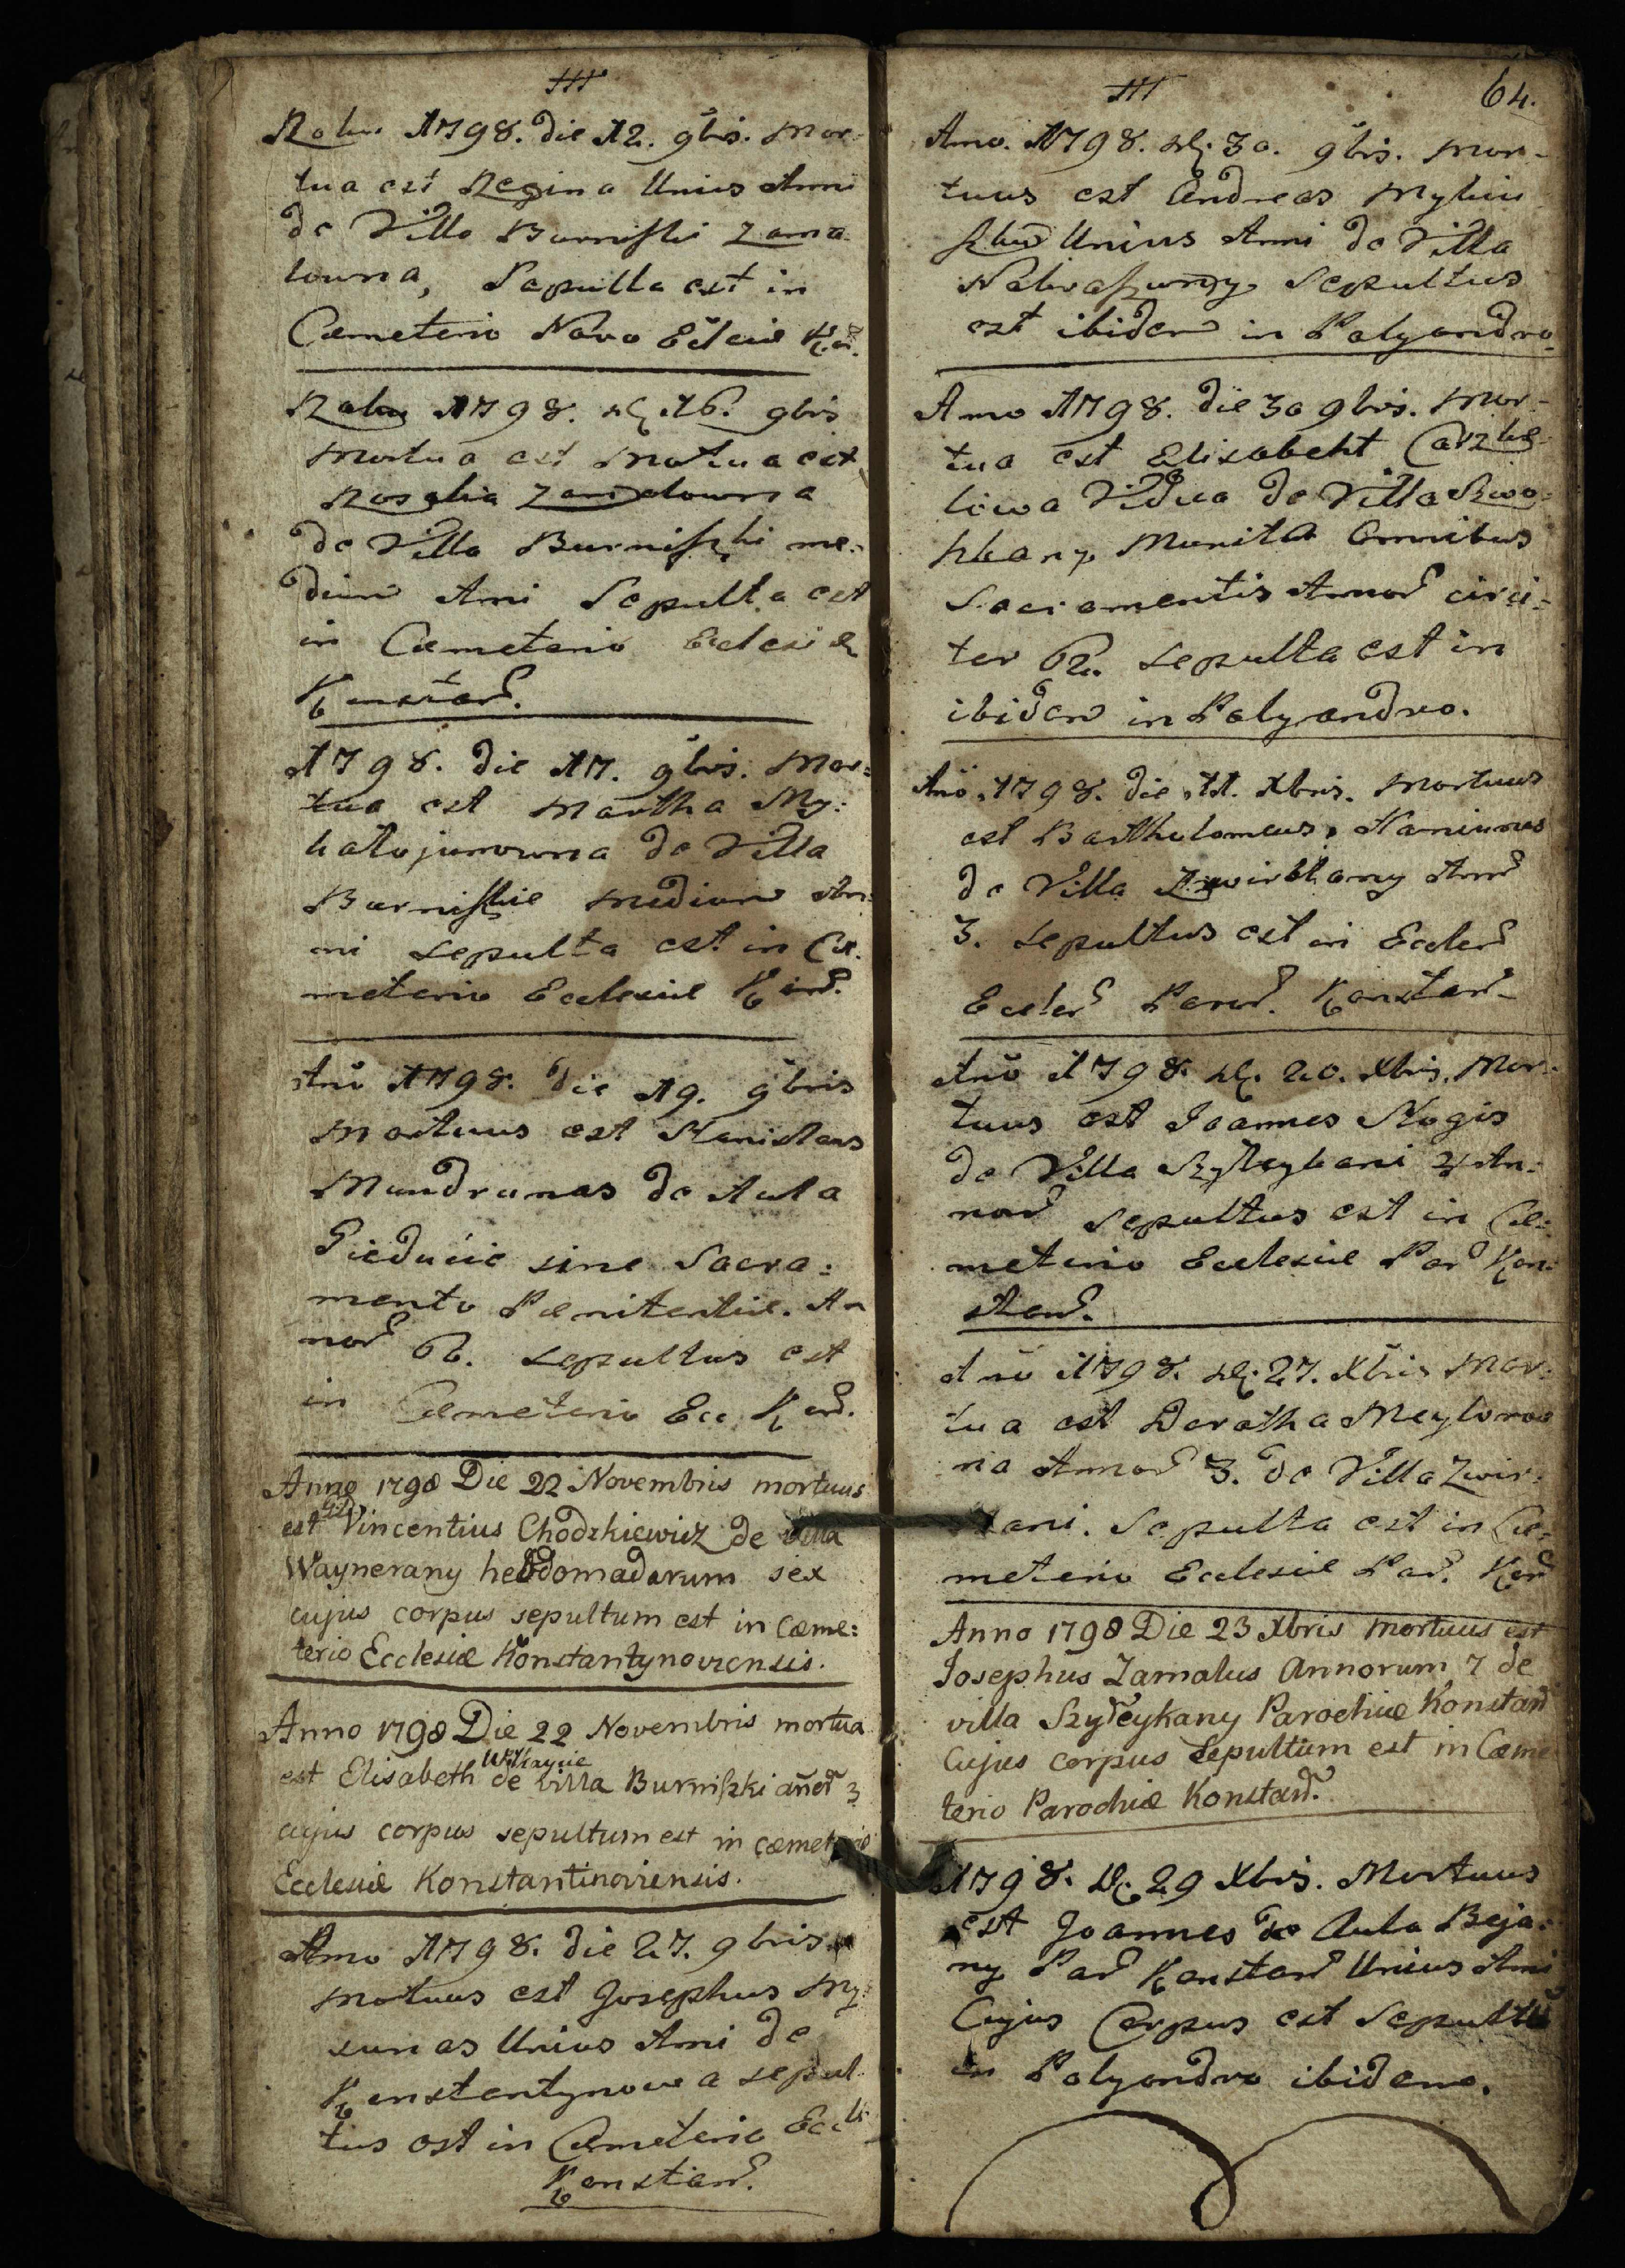 Roku 1798. die 12. 9bris. Mor-
tua est Regina Unius Anni
de Villa Burniszki Zama-
lowna, Sepulta est in
Cæmeterio Novo
Roku 1798. d. 16. 9bris
Mortua est Mortua est
Rosalia Zamalowna
de Villa Burniszki me-
dium Ani Sepulta est
in Cæmeterio Ecclesiæ
Konstań.
1798. die 17. 9bris. Mor:
tua est Martha My:
kałojunowna de Villa
Burniszkie medium An:
ni sepulta est in Cæ-
meterio Ecclesiæ Koń.
Anō 1798. die 19. 9bris
Mortuus est Stanislaus
Mundrunas de Aula
Gieducie sine Sacra:
mento Pænitentiæ. An
nor̃ 66. sepultus est
in Cæmeterio Ecc. Koń.
Anno 1798 Die 22 Novembris mortuus
est Vincentius Chodzkiewicz de villa
Waynerany hebdomadarum sex
cujus corpus sepultum est in Cæme:
terio Ecclesiæ Konstantynoviensis.
Anno 1798 Die 22 Novembris mortua
est Elisabeth de villa Burniszki añor̃ 3
cujus corpus sepultum est in cæmeterio
Ecclesiæ Konstantinoviensis.
Anno 1798. die 27. 9bris.
Mortuus est Josephus My-
xunas Unius Ani de
Konstantynowa sepul-
tus est in Cæmeterio Eccle
Konstań.
64.
Anno. 1798. d. 30. 9bris. Mor-
tuus est Andreas Mykiu
Unius Anni de Villa
Sepultus
est ibidem in Polyandro
Anno 1798. die 30 9bris. Mor-
tua est Elisabeht
liowa Vidua de Villa Szwo-
Munita Omnibus
Sacramentis Annor̃ circi-
ter 62. sepulta est in
ibidem in Polyandro.
Anō. 1798. die 11. Xbris. Mortuus
est Bartholomeus Kaniunas
de Villa Zwirblany Ann̄
3. sepultus est in Eccles̄
Eccles̄ Paro. Konstań-
Anō 1798. d. 20. Xbris. Mor-
tuus est Joannes Nogis
de Villa Szyłeykani 4 An-
nor̃ Sepultus est in Cæ-
meterio Ecclesiæ Par̃ Kon-
stań.
Anō 1798. d. 27. Xbris Mor-
tua est Dorotha Meylorow
na Annor̃ 3. de Villa Zwir-
lani. Sepulta est in Cæ-
meterio Ecclesiæ Par. Koń
Anno 1798 Die 23 Xbris Mortuus est
Josephus Zamalus Annorum 7 de
villa Szyłeykany Parochiæ Konstań
Cujus corpus Sepultum est in Cæme
terio Parochiæ Konstań.
1798. D. 29 Xbris. Mortuus
est Joannes de Aula Beja-
ny Par̃ Konstań Unius Ani
Cujus Corpus est Sepultũ
in Polyandro ibidem.